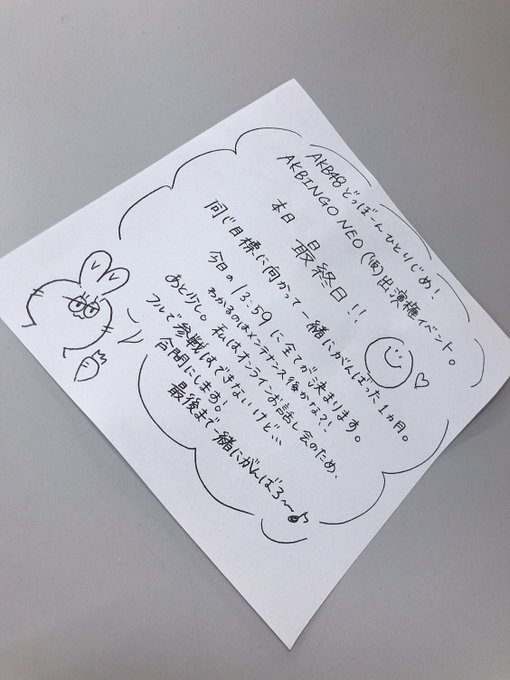 AKB48 どっぼーんひとりじめ！
AKBINGO NEO (仮) 出演権イベント。
本日 最終日!!
同じ目標に向かって一緒にがんばった1カ月。
今日の 13:59 に全てが決まります。
わかるのはメンテナンス後かな?!
あと少し。私はオンラインお話し会のため、
フルで参戦はできないけど…
合間にします！
最後まで一緒にがんばろ〜♪